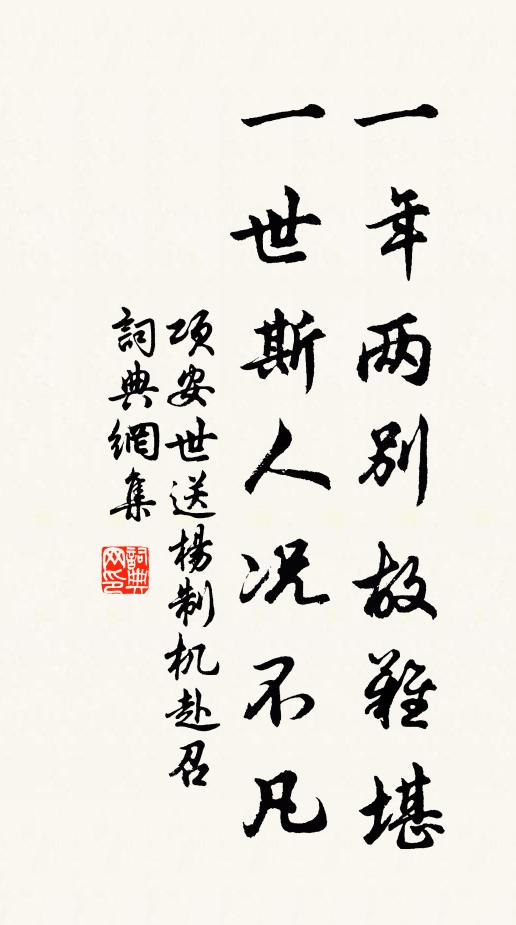 一年两别故難堪
一世斯人况不凡
项安世送楊制机赴召
詞典網集
詞典网印